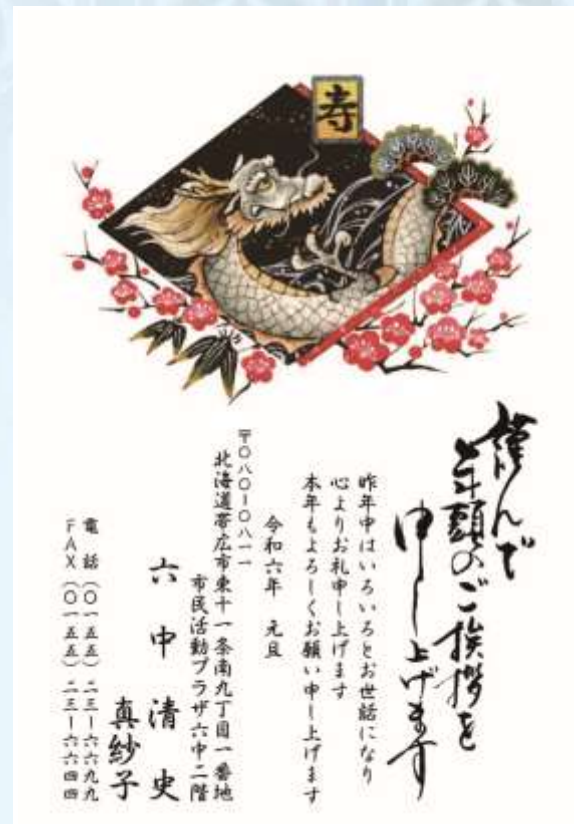 寿
謹んで
年頭のご挨拶を
申し上げます
昨年中はいろいろとお世話になり
心よりお礼申し上げます
本年もよろしくお願い申し上げます
令和六年 元旦
〒〇八〇-〇八一一
北海道帯広市東十一条南九丁目一番地
市民活動プラザ六中二階
六中 清史
真紗子
電話(〇一五五)二三-六六九九
FAX(〇一五五)二三-六六四四